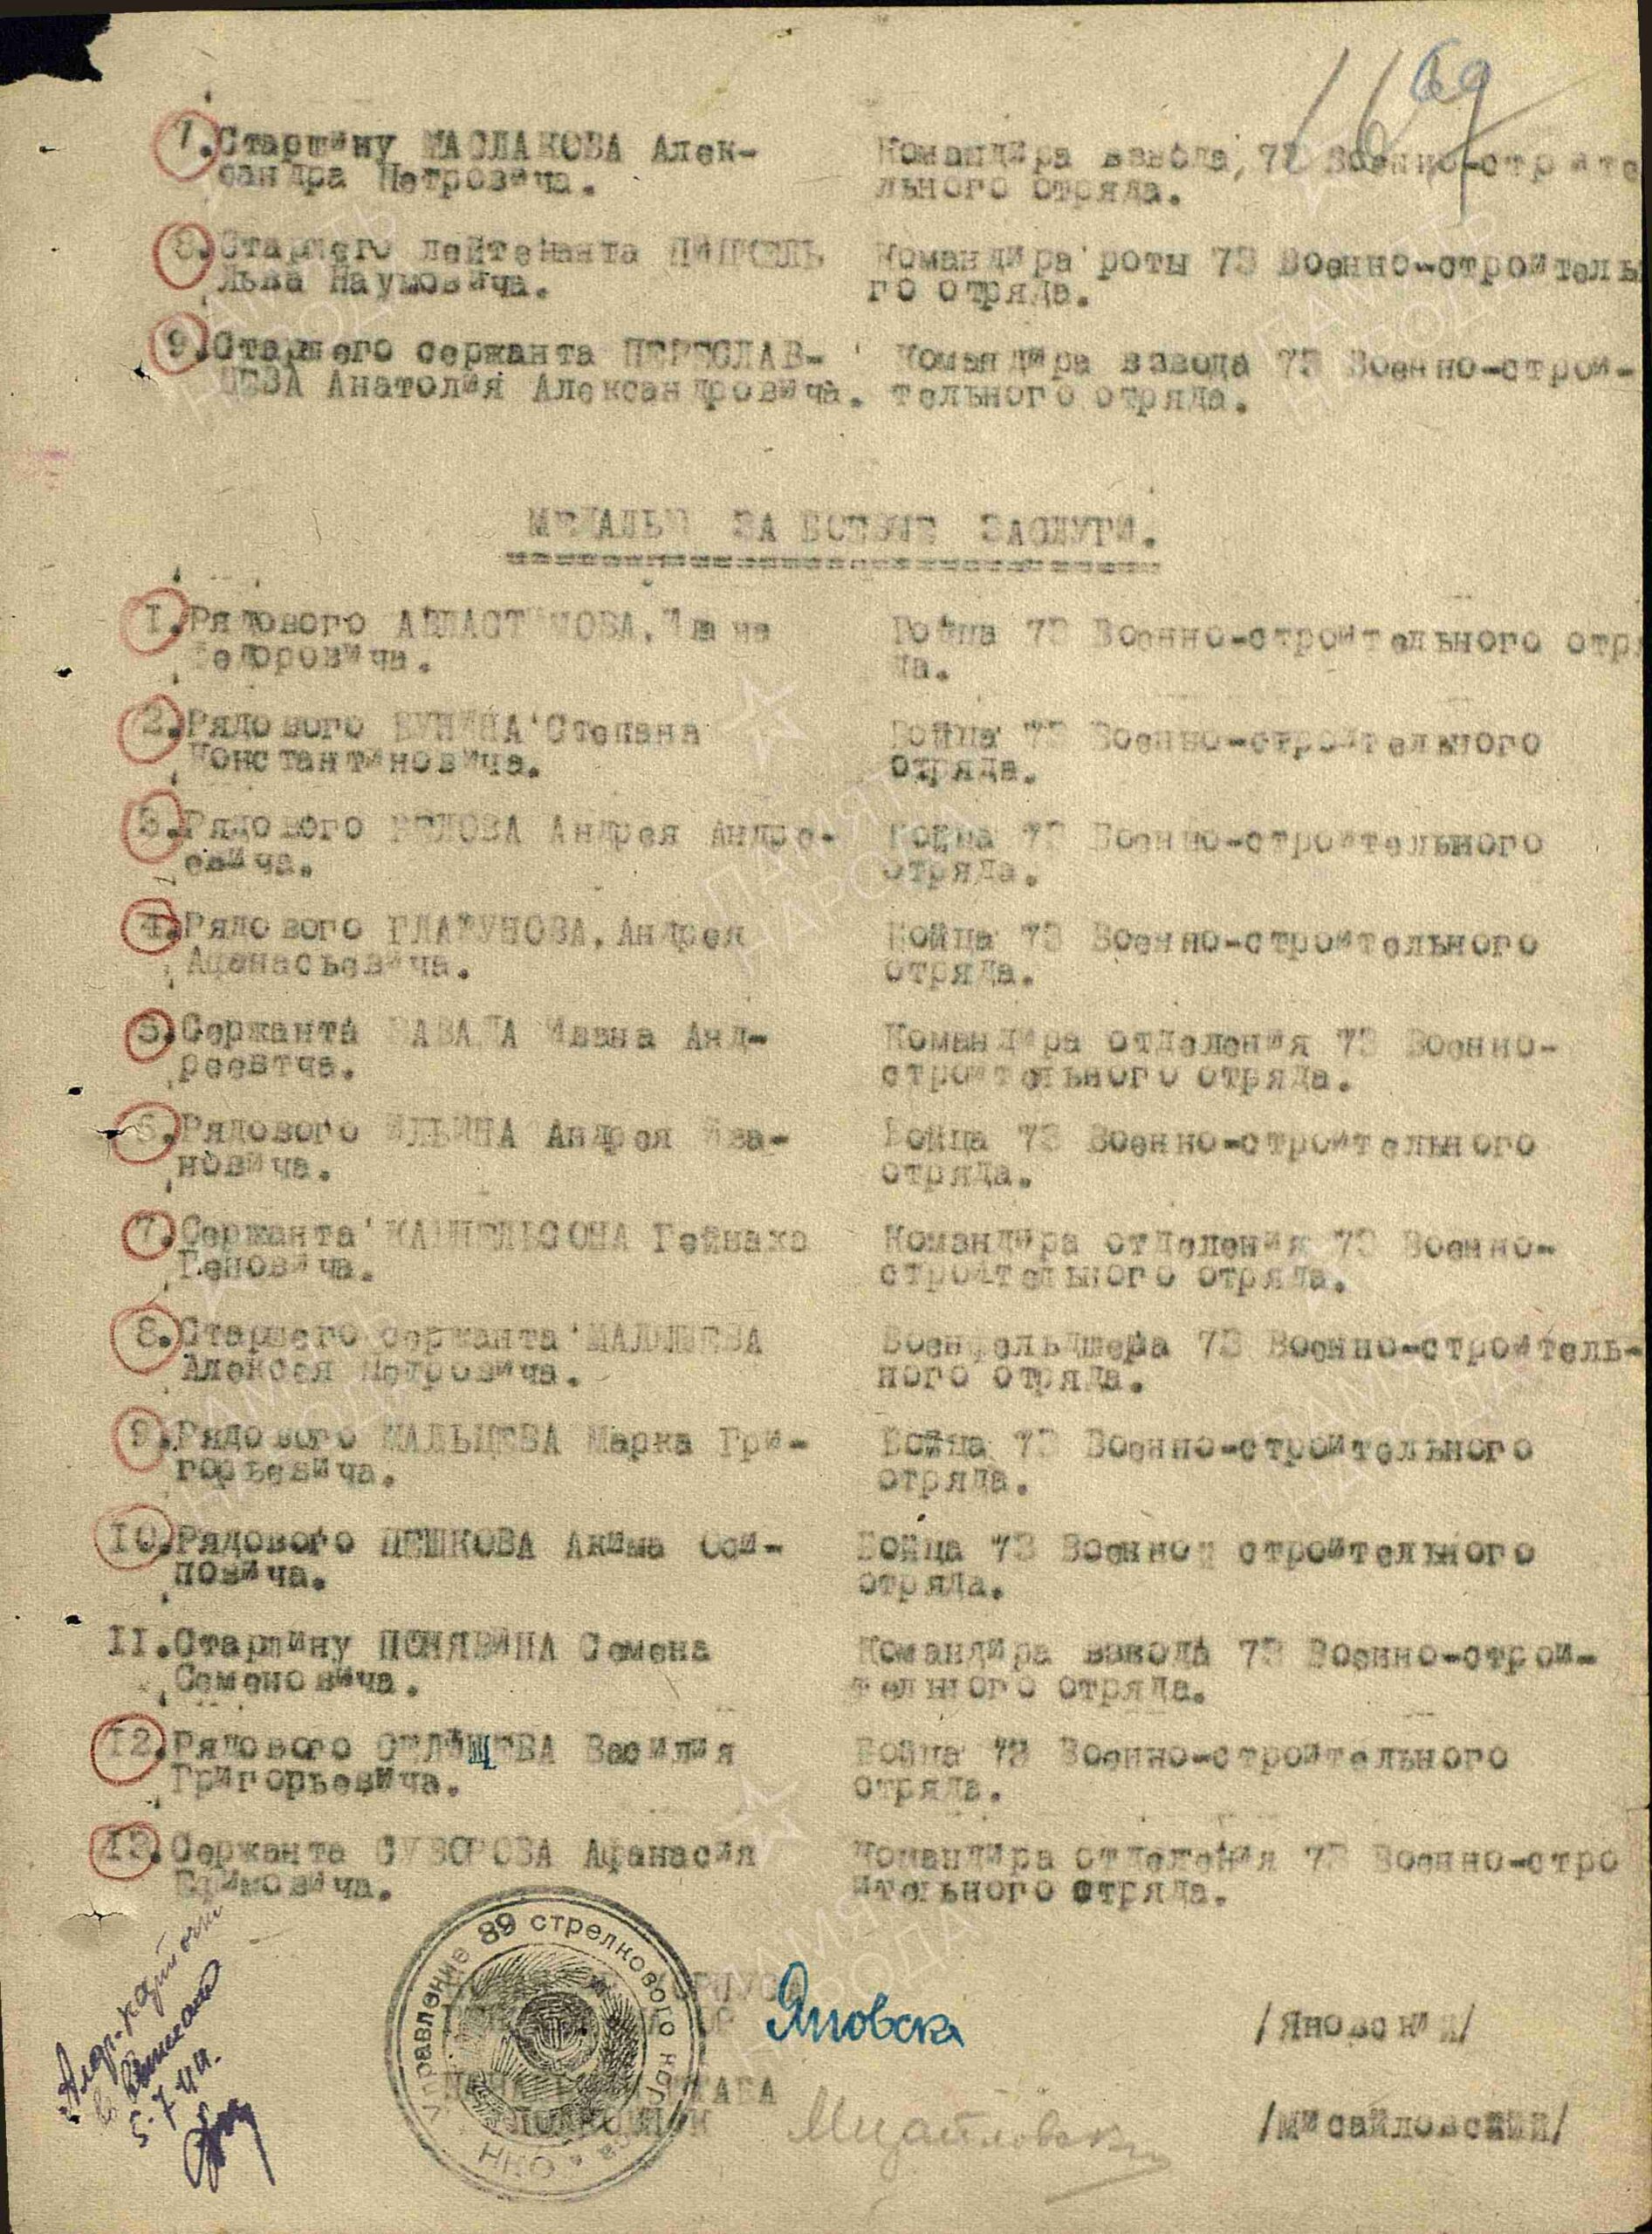 169
7.Старшину МАСЛАКОВА Алек- Командира взвода, 73 Военно-строите
сандра Петровича. льного отряда.
8.Старшего лейтенанта Командира роты 73 Военно-строитель
Льва Наумовича. го отряда.
9.Старшего сержанта ПЕРЕСЛАВ- Командира взвода 73 Военно-строи-
ЦЕВА Анатолия Александровича. тельного отряда.
МЕДАЛЬЮ ЗА БОЕВЫЕ ЗАСЛУГИ.
1.Рядового Ивана Бойца 73 Военно-строительного отря
Федоровича. да.
2.Рядового БУНИНА Степана Бойца 73 Военно-строительного
Константиновича. отряда.
3.Рядового БЕЛОВА Андрея Андре- Бойца 73 Военно-строительного
евича. отряда.
4.Рядового ГЛАЗУНОВА Андрея Бойца 73 Военно-строительного
Афанасьевича. отряда.
5.Сержанта Ивана Анд- Командира отделения 73 Военно-
реевтча. строительного отряда.
6.Рядового ИЛЬИНА Андрея Ива- Бойца 73 Военно-строительного
новича. отряда.
7.Сержанта Командира отделения 73 Военно-
Геновича. строительного отряда.
8.Старшего сержанта Военфельдшера 73 Военно-строитель-
Алексея Петровича. ного отряда.
9.Рядового МАЛЬЦЕВА Марка Гри- Бойца 73 Военно-строительного
горьевича. отряда.
10.Рядового ПЕШКОВА Акима Оси- Бойца 73 Военно строительного
повича. отряда.
11.Старшину ПОНЯВИНА Семена Командира взвода 73 Военно-строи-
Семеновича. тельного отряда.
12.Рядового СЕЛИЩЕВА Василия Бойца 73 Военно-строительного
Григорьевича. отряда.
13.Сержанта СУВОРОВА Афанасия Командира отделения 73 Военно-стро
Ефимовича. ительного отряда.
Управление 89 стрелкового корпуса
НКО
Яновски /Яновский/
/Мисайловский/
5.7.44.
ПАМЯТЬ
НАРОДА